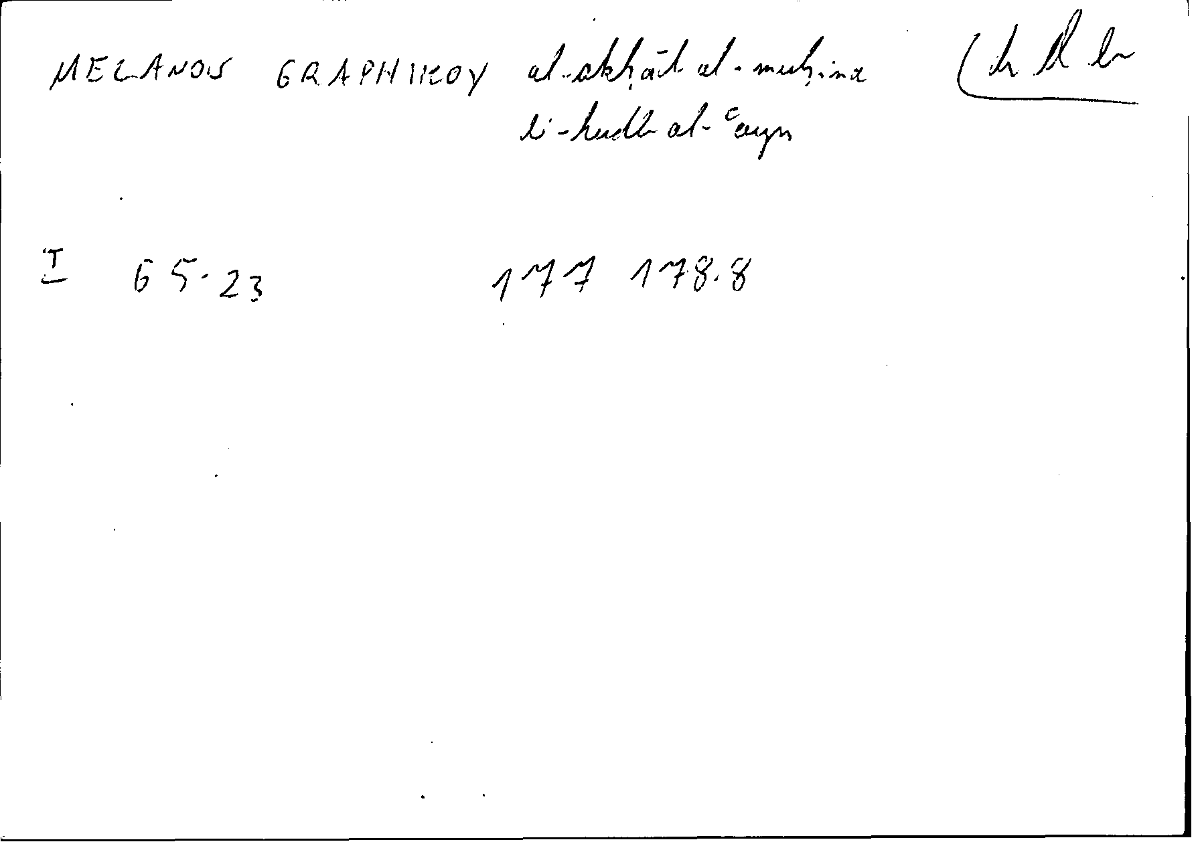 MELANOS GRAPHIKOY al-akḥāl al-muḥina (h d b
li-hudb al-ʿayn
I 65.23 177 178.8